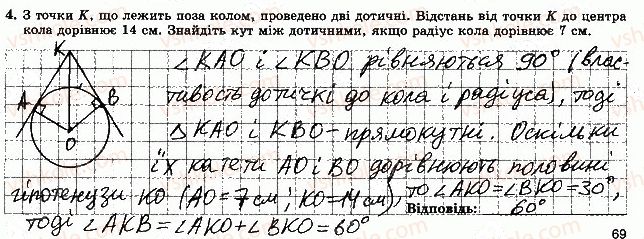 4. З точки К, що лежить поза колом, проведено дві дотичні. Відстань від точки К до центра
кола дорівнює 14 см. Знайдіть кут між дотичними, якщо радіус кола дорівнює 7 см.
K
∠KAO і ∠KBO рівняються 90° (влас-
A B
тивость дотичкі до кола і радіуса), тоді
O
△KAO і KBO - прямокутні. Оскільки
їх катети AO і BO дорівнюють половині
гіпотенузи KO (AO = 7 см; KO = 14 см), то ∠AKO = ∠BKO = 30°,
Відповідь: 60°
тоді ∠AKB = ∠AKO + ∠BKO = 60°
69